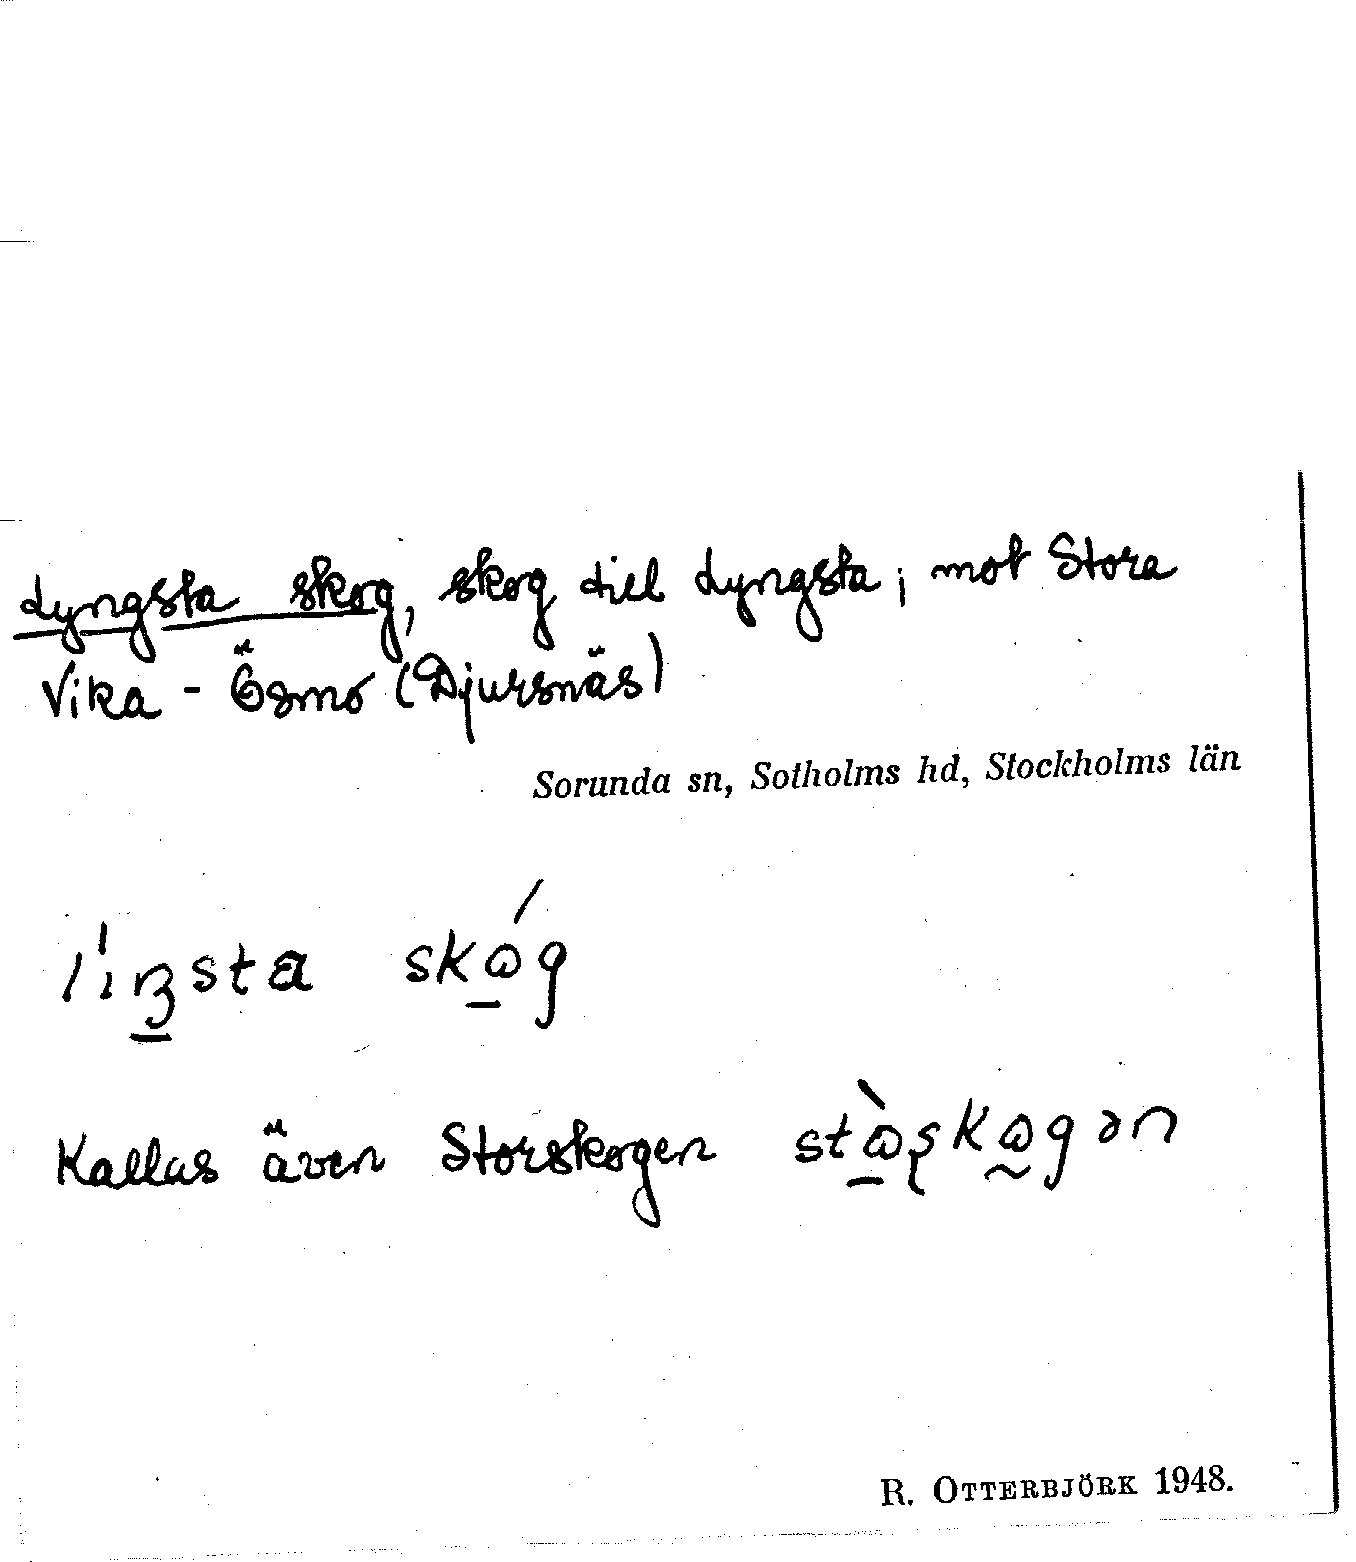 Lyngsta skog, skog till Lyngsta; mot Stora
Vika - Ösmo (Djursnäs)
Sorunda sn, Sotholms hd, Stockholms län
Kallas även Storskogen
R. OTTERBJÖRK 1948.